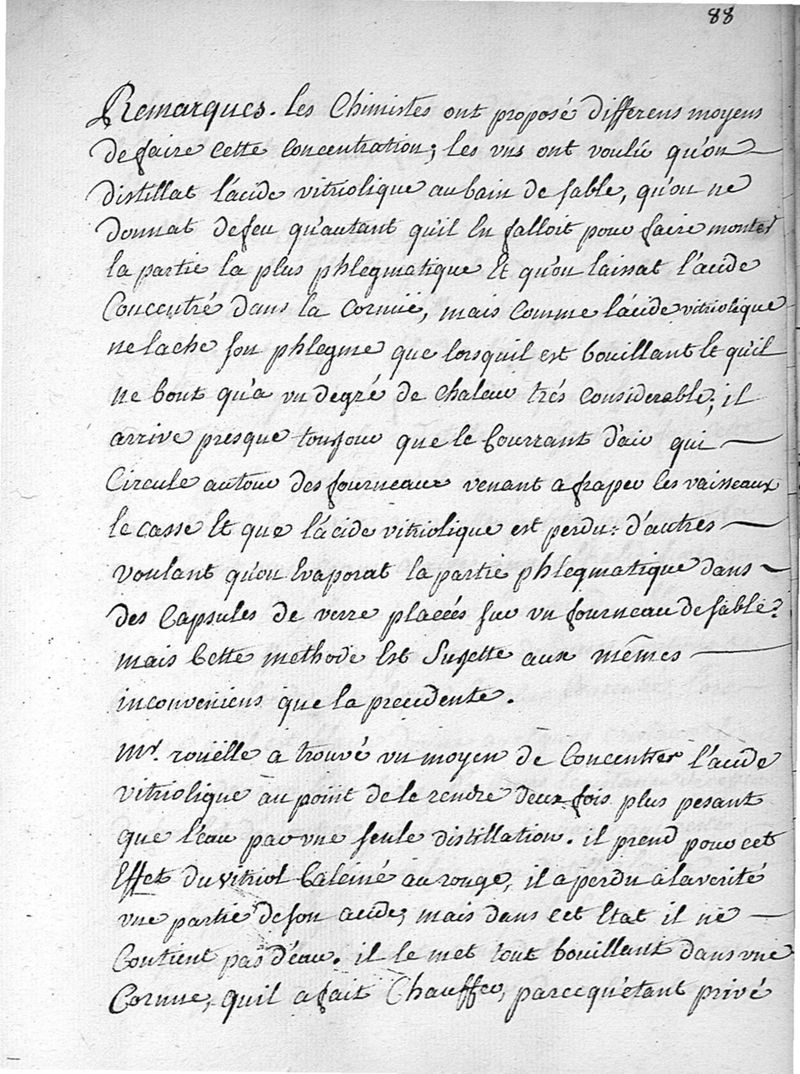 88
Remarques. les Chimistes ont proposé differens moyens
de faire cette concentration; les vns ont voulu qu'on
distillat l'acide vitriolique au bain de sable, qu'on ne
donnat de feu qu'autant qu'il En falloit pour faire monter
la partie la plus phlegmatique Et qu'on laissat l'acide
Concentré dans la Cornüe, mais comme l'acide vitriolique
ne lache son phlegme que lorsquil est bouillant Et qu'il
ne bout qu'a vn degré de chaleur trés considerable, il
arrive presque toujour que le Courrant d'air qui
Circule autour des fourneaux venant a fraper les vaisseaux
le casse Et que l'acide vitriolique est perdu: d'autres
voulant qu'on Evaporat la partie phlegmatique dans
des Capsules de verre placées sur vn fourneau de sable.
mais Cette methode Est Sujette aux mêmes
inconveniens que la precedente.
Mr. roüelle a trouvé vn moyen de Concentrer l'acide
vitriolique au point de le rendre deux fois plus pesant
que l'eau par vne seule distillation. il prend pour cet
Effet du vitriol Calciné au rouge, il a perdu a la verité
vne partie de son acide, mais dans cet Etat il ne
Contient pas d'eau. il le met tout bouillant dans vne
Cornue, qu'il a fait Chauffer, parcequ'étant privé